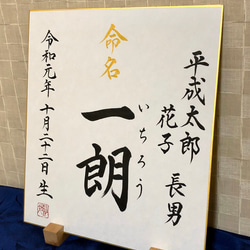 平成太郎
花子 長男
命名
一朗
いちろう
令和元年 十月二十二日 生